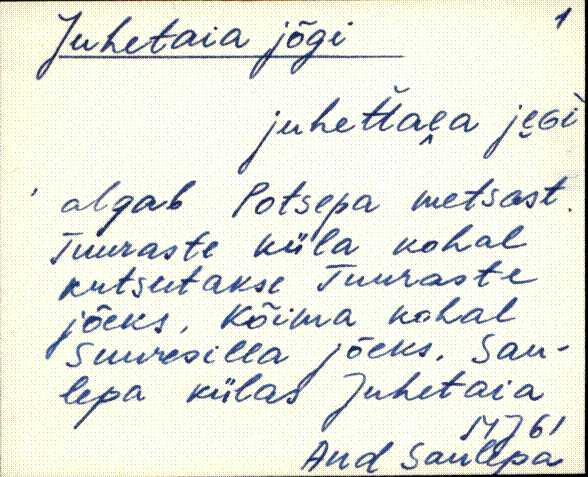 Juhetaia jõgi 1
juhettaea jegi
algab Potsepa metsast.
Tuuraste küla kohal
kutsutakse Tuuraste
jõeks. Kõima kohal
Suuresilla jõeks. Sau-
lepa külas Juhetaia
61
Aud Saulepa